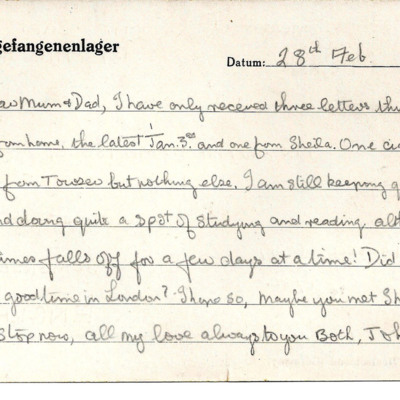 gefangenenlager
Datum: 28th Feb.
Mum & Dad, I have only received three letters
from home, the latest Jan. 3rd and one from Sheila. One
from Towser but nothing else. I am still keeping
doing quite a spot of studying and reading
falls off for a few days at a time! Did
good time in London? I hope so, maybe you met Sh
stop now, all my love always to you Both, Joh